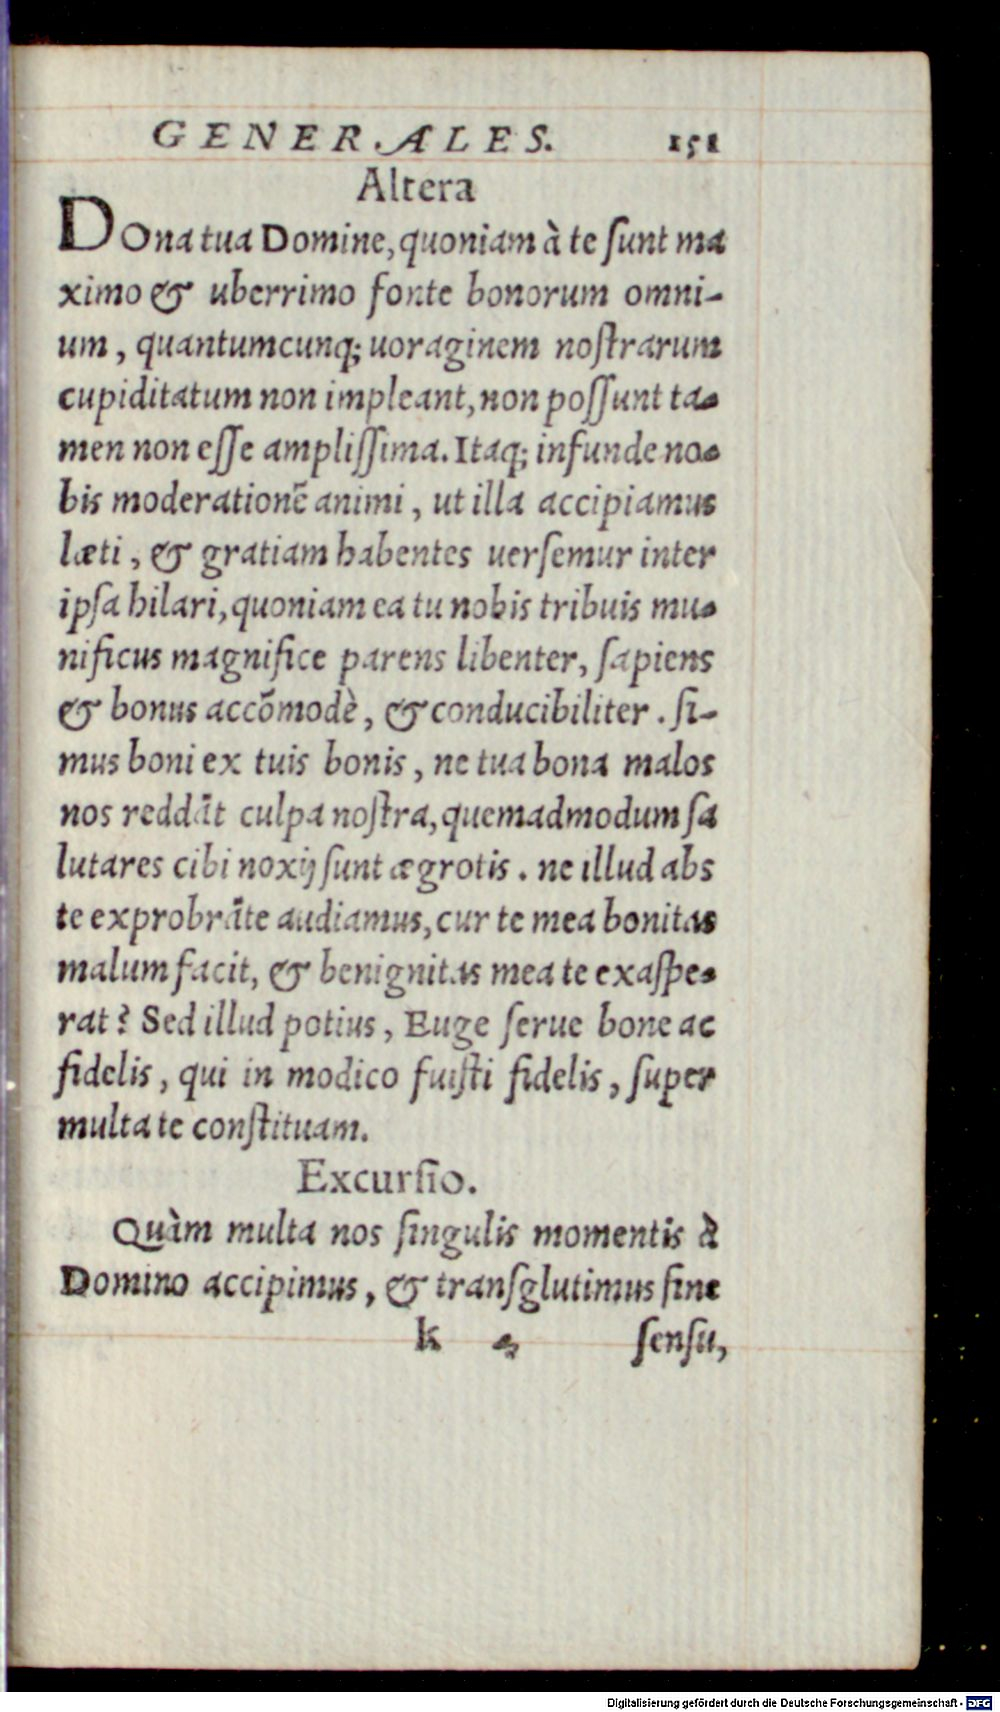 GENERALES. 151
Altera
DOna tua Domine, quoniam à te ſunt ma
ximo & uberrimo fonte bonorum omni-
um, quantumcunq; uoraginem noſtrarum
cupiditatum non impleant, non poſſunt ta-
men non eſſe ampliſſima. Itaq; infunde no-
bis moderationē animi, ut illa accipiamus
læti, & gratiam habentes uerſemur inter
ipſa hilari, quoniam ea tu nobis tribuis mu-
nificus magnifice parens libenter, ſapiens
& bonus accōmodè, & conducibiliter. ſi-
mus boni ex tuis bonis, ne tua bona malos
nos reddāt culpa noſtra, quemadmodum ſa
lutares cibi noxij ſunt ægrotis. ne illud abs
te exprobrāte audiamus, cur te mea bonitas
malum facit, & benignitas mea te exaſpe-
rat? Sed illud potius, Euge ſerue bone ac
fidelis, qui in modico fuiſti fidelis, ſuper
multa te conſtituam.
Excurſio.
Quàm multa nos ſingulis momentis à
Domino accipimus, & tranſglutimus ſine
k ſenſu,
Digitalisierung gefördert durch die Deutsche Forschungsgemeinschaft - DFG